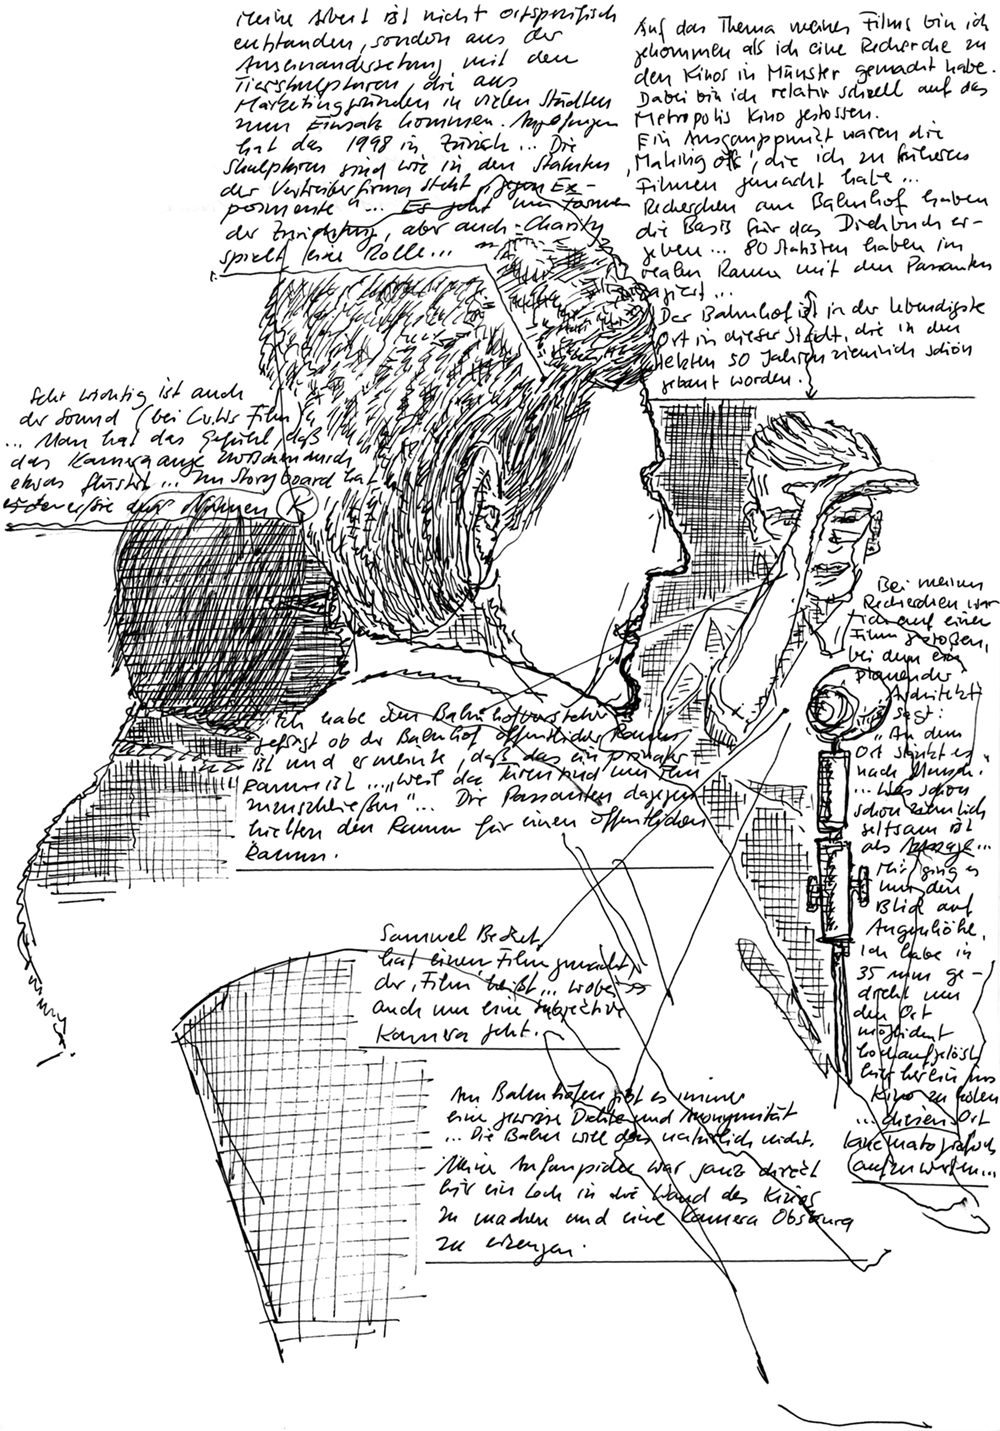 Meine Arbeit ist nicht ortspezifisch
entstanden, sondern aus der
Auseinandersetzung mit den
Tierskulpturen, die aus
Marketinggründen in vielen Städten
zum Einsatz kommen. Angefangen
hat das 1998 in Zürich... Die
Skulpturen sind wie in den Statuten
der Vertreiberfirma steht "gegen Ex-
posmente"... Es geht um Formen
der , aber auch Charity
spielt eine Rolle...
Auf das Thema meines Films bin ich
gekommen als ich eine Recherche zu
den Kinos in Münster gemacht habe.
Dabei bin ich relativ schnell auf das
Metropolis Kino gestossen.
Ein Ausgangspunkt waren die
'Making offs', die ich zu früheren
Filmen gemacht habe...
Recherchen am Bahnhof haben
die Basis für das Drehbuch er-
geben... 80 Statisten haben im
realen Raum mit den Passanten
agiert...
Der Bahnhof ist in der lebendigste
Ort in dieser Stadt, die in den
letzten 50 Jahren ziemlich schön
gebaut worden.
Sehr wichtig ist auch
der Sound (bei Film
... Man hat das Gefühl, daß
das Kameraauge
etwas flüstert... Im Storyboard hat
Rahmen
K
Bei meinen
Recherchen war
ich auf einen
Film gestoßen,
bei dem ein
planender
Architekt
sagt:
"An dem
Ort stinkt es
nach Mensch."
... Was schon
schon ziemlich
seltsam ist
als Aussage...
Mir ging es
um den
Blick auf
Augenhöhe.
Ich habe in
35 mm ge-
dreht um
den Ort
möglichst
hochaufgelöst
hier herein ins
Kino zu holen
... diesen Ort
kinematografisch
aufzuwerten...
Ich habe den Bahnhofvorsteher
gefragt ob der Bahnhof öffentlicher Raum
ist und er meinte, daß das ein privater
Raum ist... "weil da Türen sind um ihn
"... Die Passanten dagegen
hielten den Raum für einen öffentlichen
Raum.
Samuel Beckett
hat einen Film gemacht,
der 'Film' heißt... wobei es
auch um eine subjective
Kamera geht.
An Bahnhöfen gibt es immer
eine gewisse Dichte und Anonymität
... Die Bahn will das natürlich nicht.
Meine Anfangsidee war ganz direct
hier ein Loch in die Wand des Kinos
zu machen und eine Kamera Obscura
zu erzeugen.